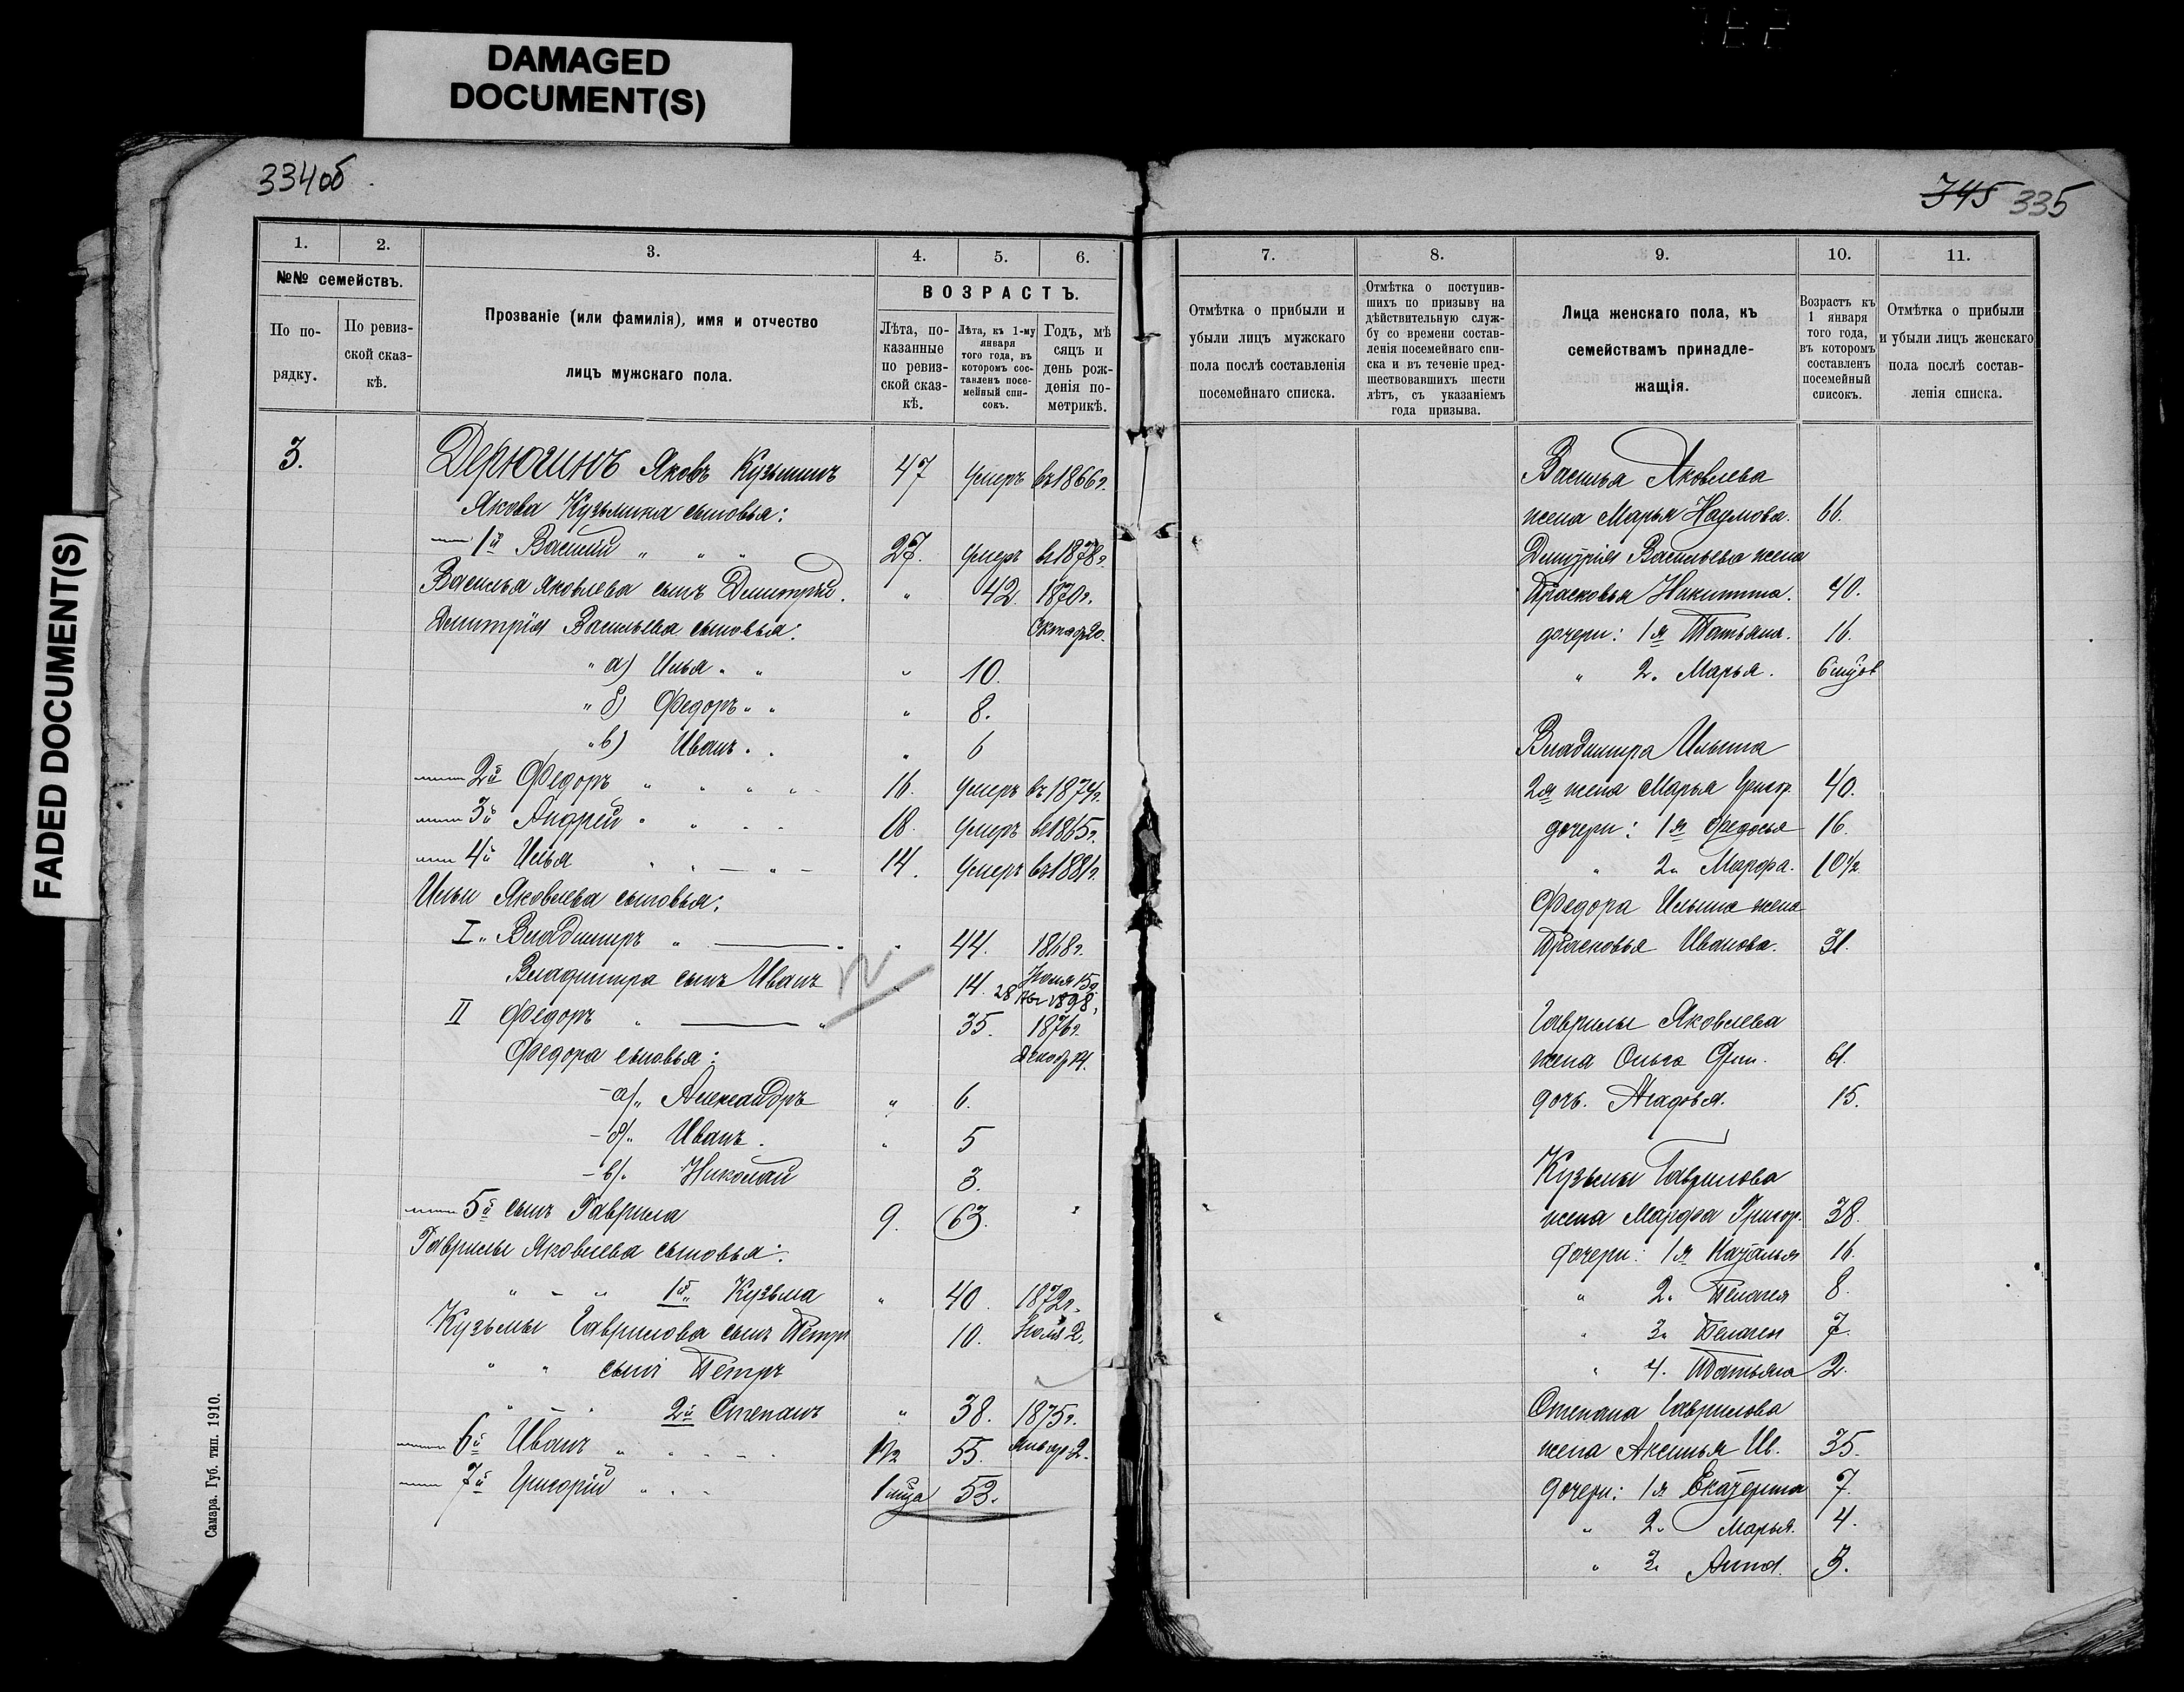 DAMAGED
DOCUMENT(S)
FADED DOCUMENT(S)
334об
1. 2. 3. 4. 5. 6.
№№ семействъ.
По по-
рядку.
По ревиз-
ской сказ-
кѣ.
Прозваніе (или фамилія), имя и отчество
лицъ мужскаго пола.
ВОЗРАСТЪ.
Лѣта, по-
казанные
по ревиз-
ской сказ-
кѣ.
Лѣта, къ 1-му
января
того года, въ
которомъ сос-
тавленъ посе-
мейный спи-
сокъ.
Годъ, мѣ
сяцъ и
день рож-
денія по-
метрикѣ.
3. Дерюгинъ Яковъ Кузьминъ 47 умеръ въ 1866 г.
Якова Кузьмина сыновья:
1й Василій " " " 27. умеръ въ 1878 г.
Василья Яковлева сынъ Дмитрій. " 42. 1870 г.
Дмитрія Васильева сыновья: Октяр 20.
" а) Илья " " " 10.
" б) Федоръ " " " 8.
" в) Иванъ " . " 6
2й Федоръ " " " " 16. умеръ въ 1874 г.
3й Андрей " " " " 18. умеръ въ 1865 г.
4й Илья " " — " — 14. умеръ въ 1881 г.
Ильи Яковлева сыновья:
I. Владимиръ " — " " 44. 1868 г.
Владимира сынъ Иванъ " 14. Іюля 15 д.
28 Авг 1898,
II Федоръ " — " 35. 1876 г.
Федора сыновья: Декабр 14.
а). Александръ " 6.
б). Иванъ. " 5
в). Николай 3.
5й сынъ Гаврила 9. 63. "
Гаврилы Яковлева сыновья:
" " " 1й " Кузьма " 40. 1872 г.
Кузьмы Гаврилова сынъ Петръ 10. Іюля 2.
" " сынъ Петръ
" " 2й Степанъ " 38. 1875 г.
6й Иванъ " " " " 1½ 55. Январ. 2.
7й Григорій " " " 1 мѣца 53.
Самара. Губ. тип. 1910.
345 335
7. 8. 9. 10. 11.
Отмѣтка о прибыли и
убыли лицъ мужскаго
пола послѣ составленія
посемейнаго списка.
Отмѣтка о поступив-
шихъ по призыву на
дѣйствительную служ-
бу со времени состав-
ленія посемейнаго спи-
ска и въ теченіе пред-
шествовавшихъ шести
лѣтъ, съ указаніемъ
года призыва.
Лица женскаго пола, къ
семействамъ принадле-
жащія.
Возрастъ къ
1 января
того года,
въ которомъ
составленъ
посемейный
списокъ.
Отмѣтка о прибыли
и убыли лицъ женскаго
пола послѣ состав-
ленія списка.
Василья Яковлева
жена Марья Наумова. 66.
Дмитрія Васильева жена
Прасковья Никитина. 40.
дочери: 1я Татьяна. 16.
" 2. Марья. 6 мѣцов
Владимира Ильина
2я жена Марья Григор. 40.
дочери: 1я Федосья 16.
" 2. Марфа. 10½
Федора Ильина жена
Прасковья Иванова. 31.
Гаврилы Яковлева
жена Ольга 61.
дочь. Агафья. 15.
Кузьмы Гаврилова
жена Марфа Григор. 38.
дочери: 1я Наталья 16.
" 2. Пелагея 8.
" 3. Пелагея 7.
" 4. Татьяна 2.
Степана Гаврилова
жена Аксинья Ив. 35.
дочери: 1я Екатерина 7.
" 2. Марья. 4.
" 3. Анна. 3.